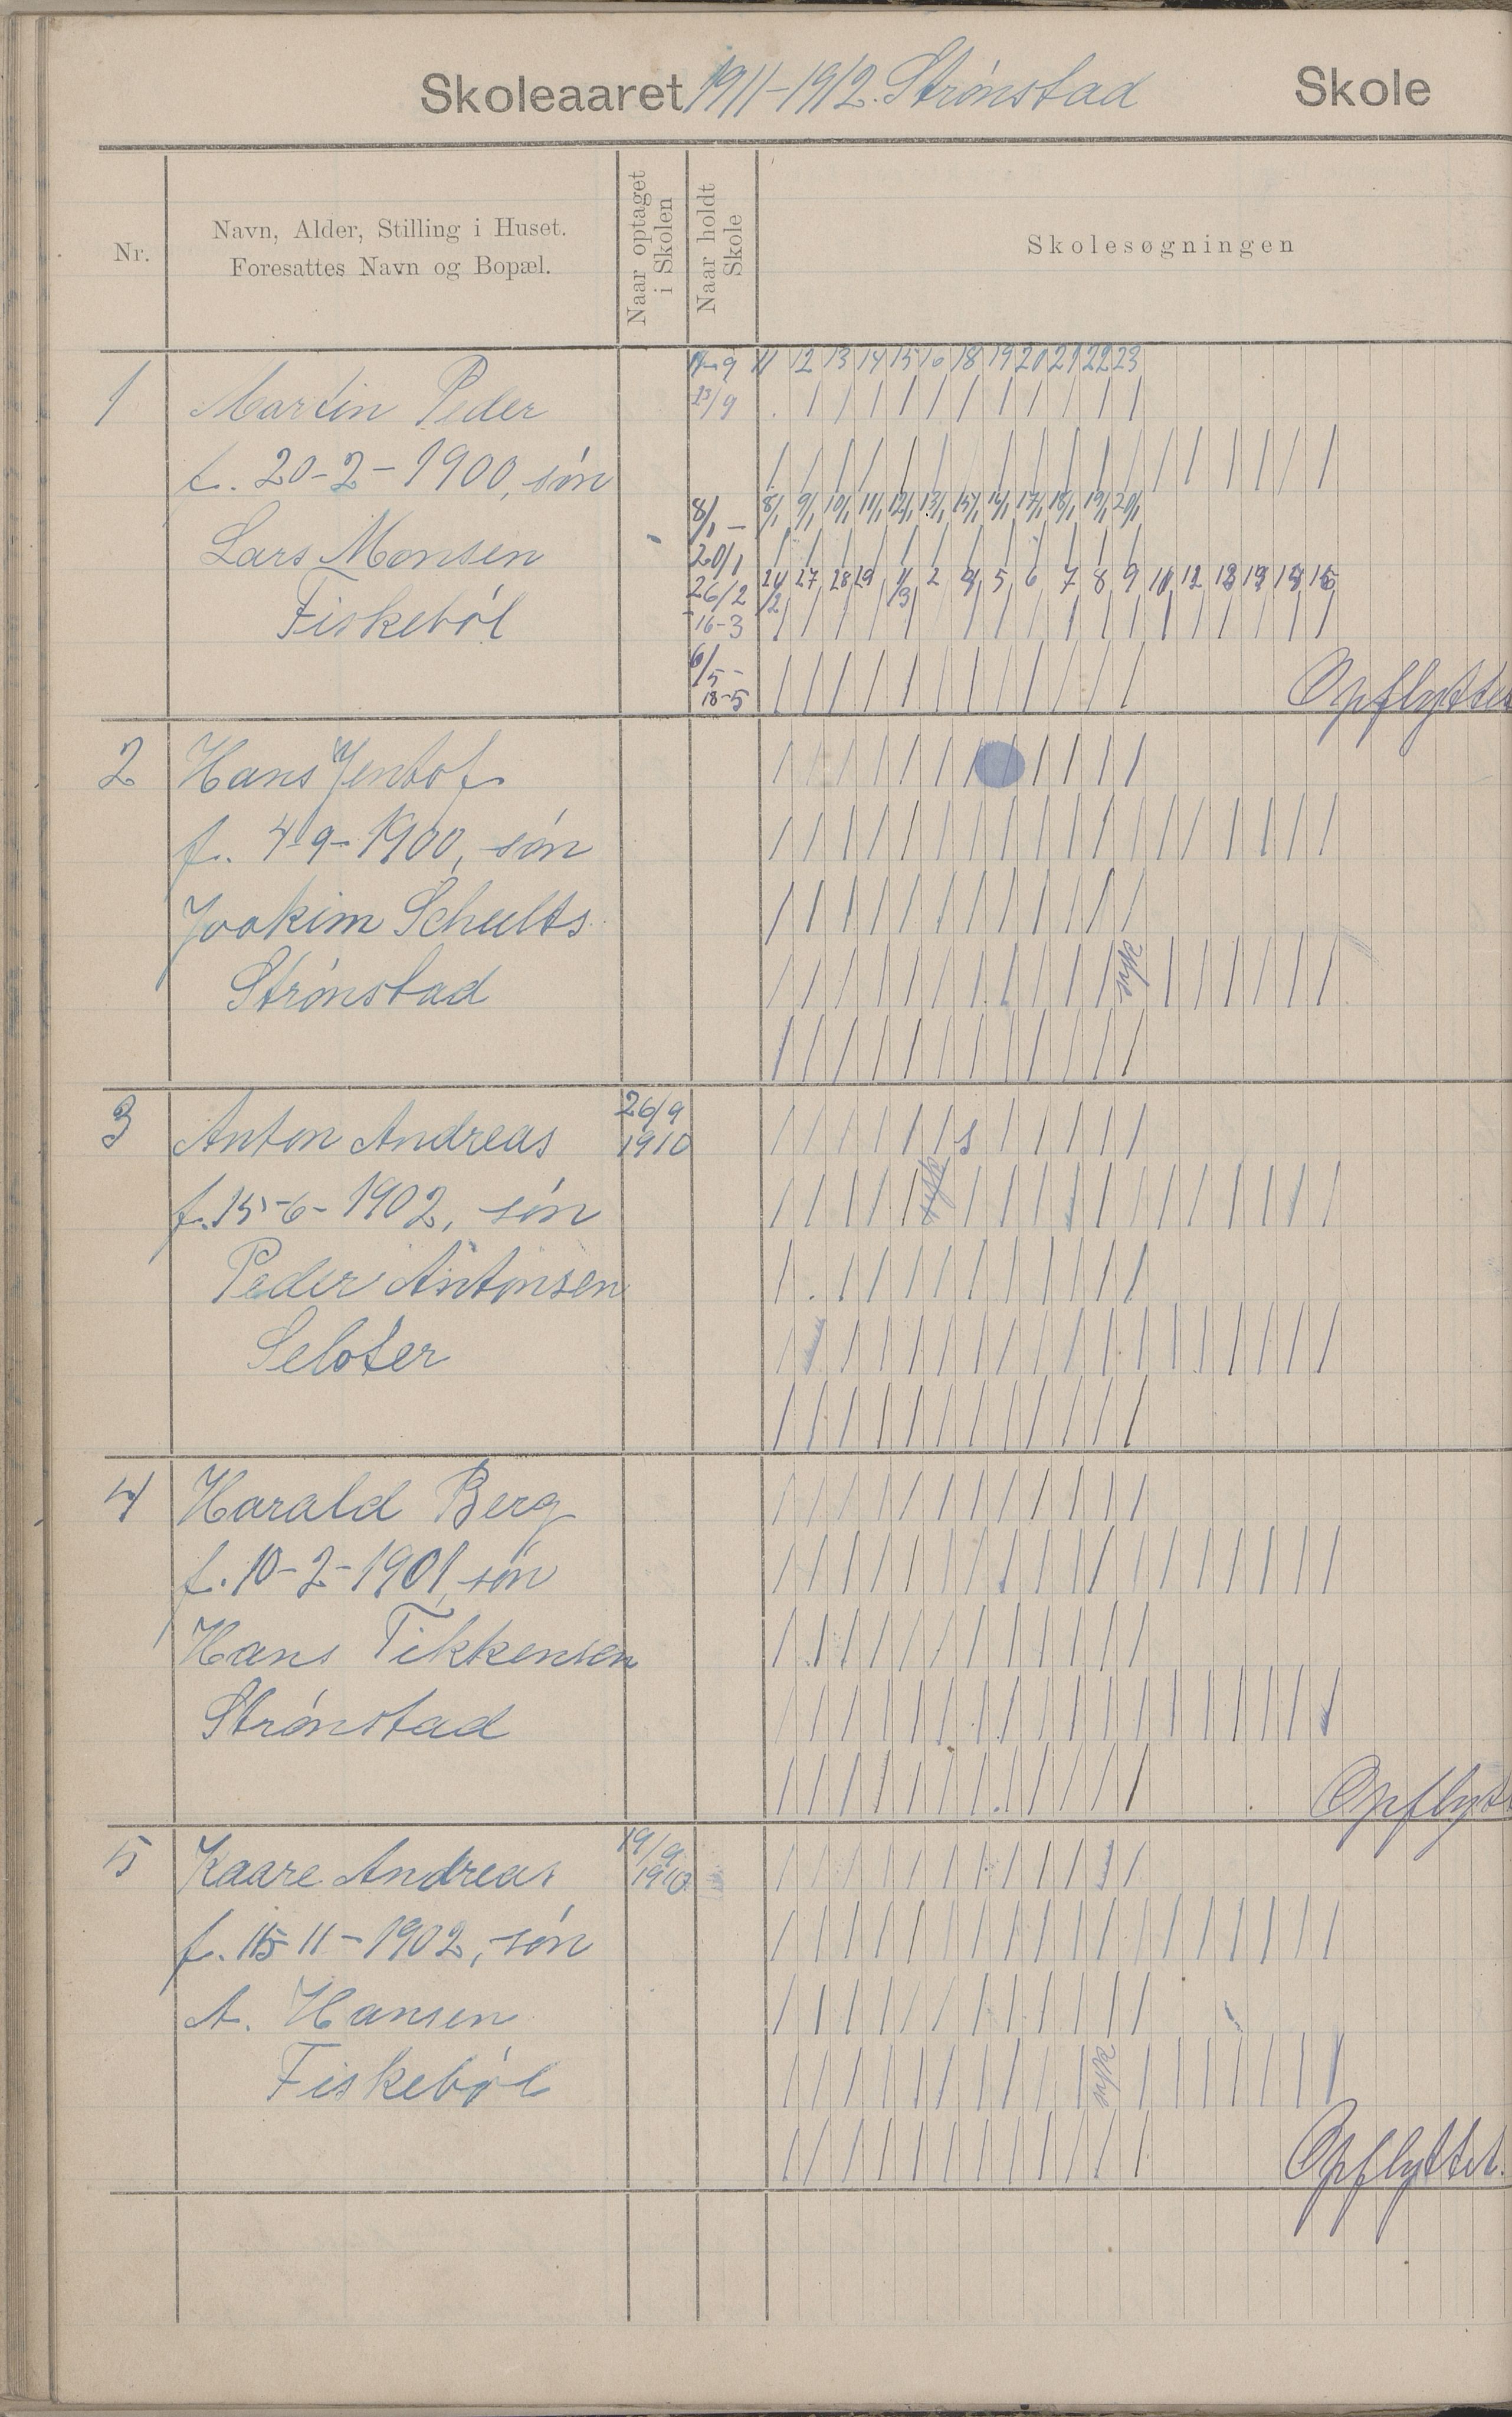 Skoleaaret 1911-1912. Strønstad Skole
Nr.
Navn, Alder, Stilling i Huset.
Foresattes Navn og Bopæl.
Naar optaget
i Skolen
Naar holdt
Skole
Skolesøgningen
11-9 11 12 13 14 15 16 18 19 20 21 22 23
1 Martin Peder 23/9
f. 20-2-1900, søn
8/1 - 8/1 9/1 10/1 11/1 12/1 13/1 15/1 16/1 17/1 18/1 19/1 20/1
Lars Monsen 20/1
26/2 27 28 29 1/3 2 4 5 6 7 8 9 10 12 13 15 16
Fiskebøl 16-3
6/5 -
18-5 Opflyttet
2 Hans Jentof
f. 4-9-1900, søn
Joakim Schults
Strønstad syk
3 Anton Andreas 26/9
1910 s
f. 15-6-1902, søn
Peder Antonsen
Seloter
4 Harald Berg
f. 10-2-1901, søn
Hans Tikkensen
Strønstad
Opflyt
5 Kaare Andreas 19/9
1910
f. 15 11-1902, søn
A. Hansen
Fiskebøl syk
Opflyttet.